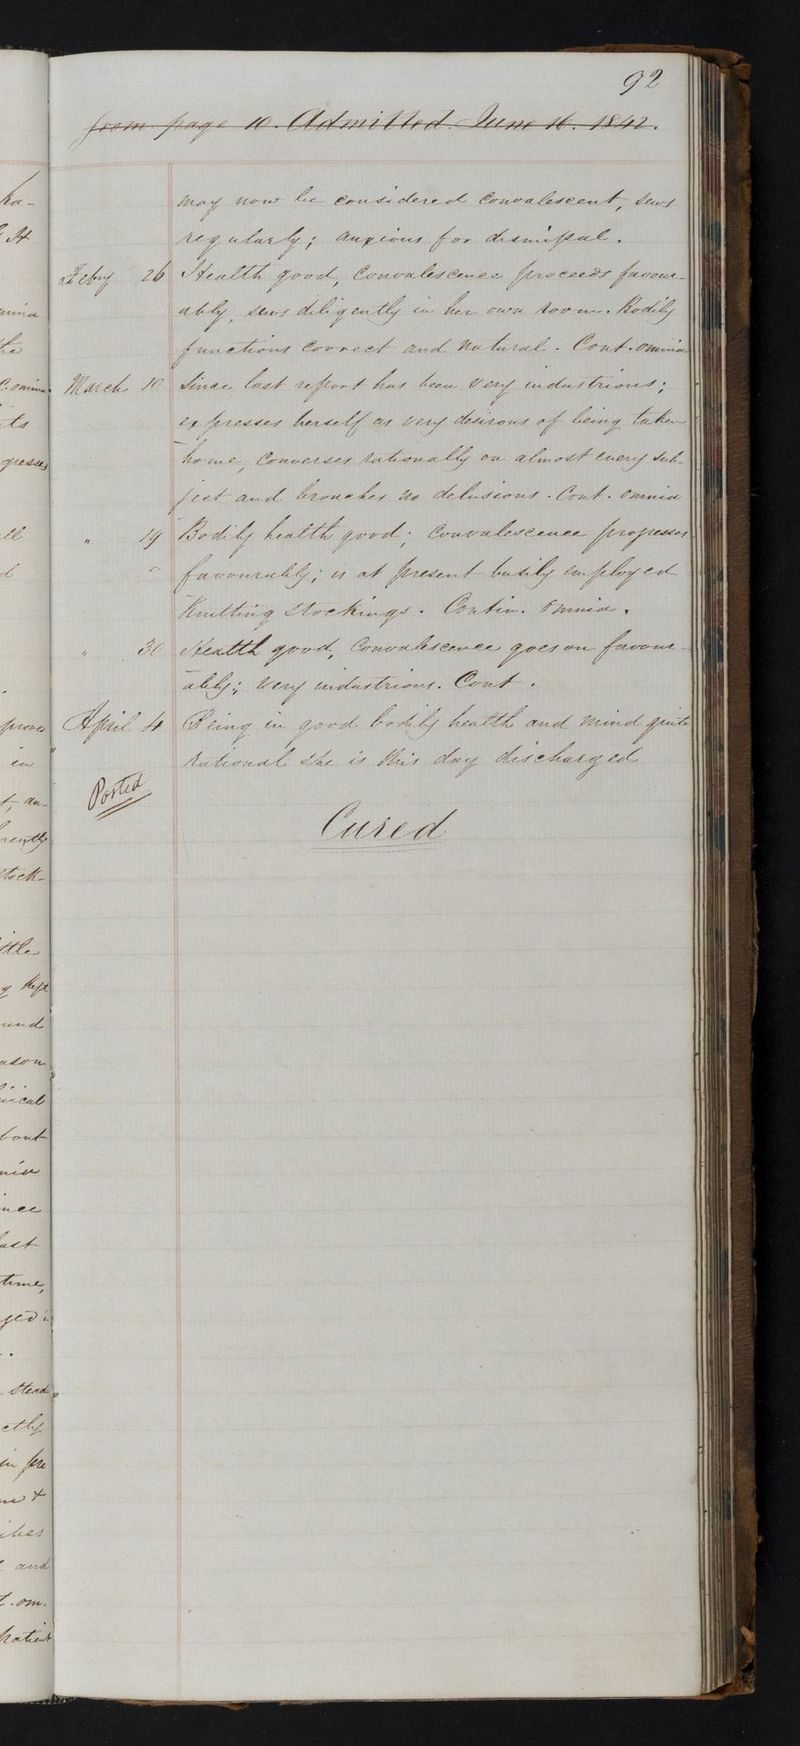 92
from page 10. Admitted. June 16. 1842.
may now be considered convalescent, sews
regularly; anxious for dismissal.
Febry 26 Health good, convalescence proceeds favour-
ably, sews diligently in her own room. Bodily
functions correct and natural. Cont. omnia
March 10 Since last report has been very industrious;
expresses herself as very desirous of being taken
home, converses rationally on almost every sub-
ject and broaches no delusions. Cont. omnia
" 19 Bodily health good; convalescence progresses
favourably; is at present busily employed
Knitting stockings. Contin. omnia.
" 30 Health good, convalescence goes on favour-
ably; very industrious. Cont.
April 4 Being in good bodily health and mind quite
rational she is this day discharged
Posted
Cured